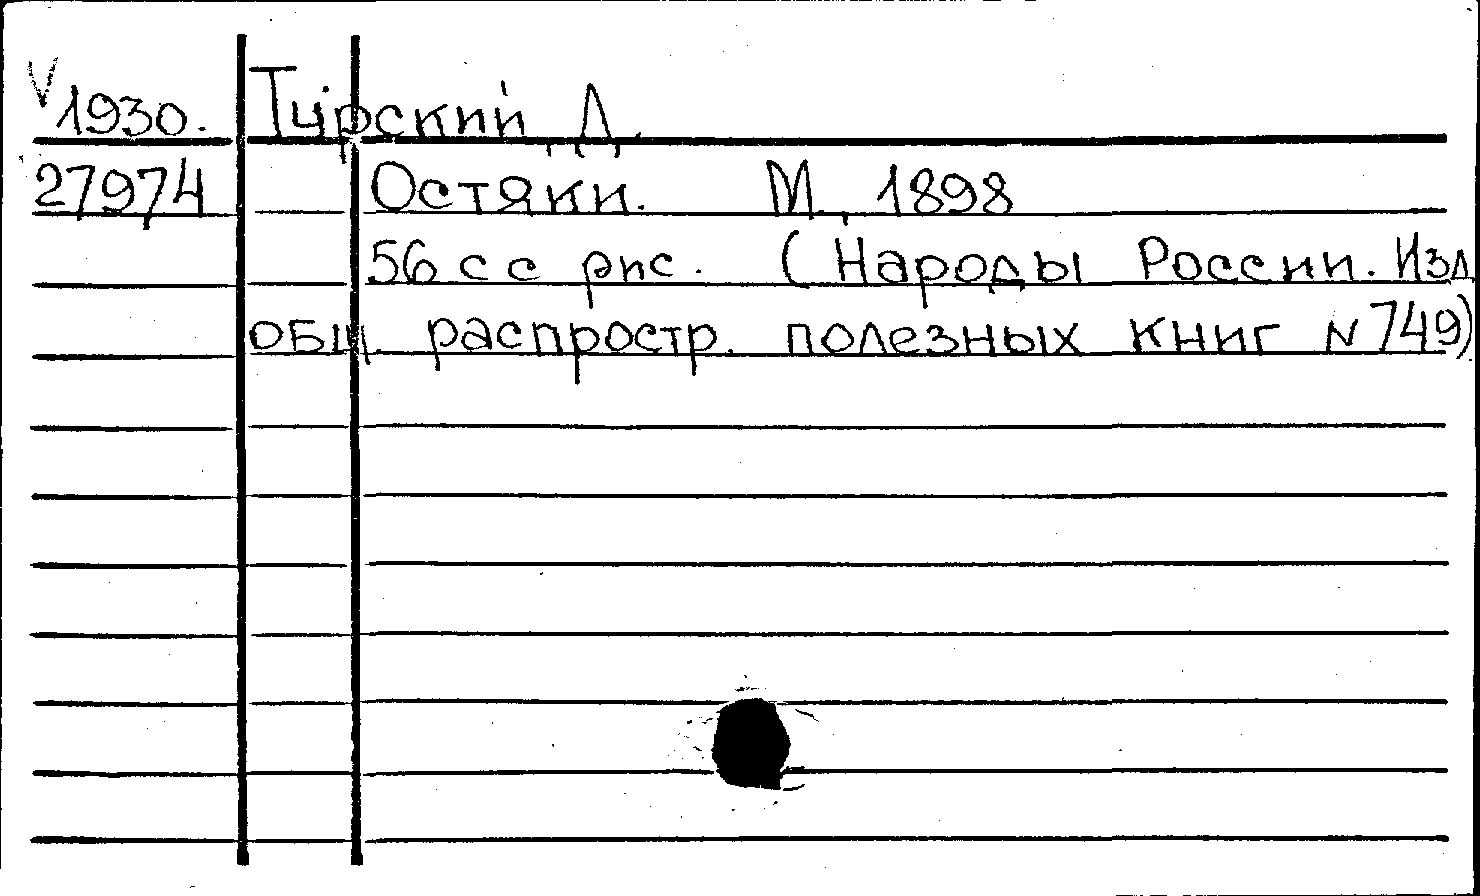 V 1930. Турский, Д.
27974 Остяки. М., 1898
56 с с рис. (Народы России. Изд
общ. распростр. полезных книг N 749)